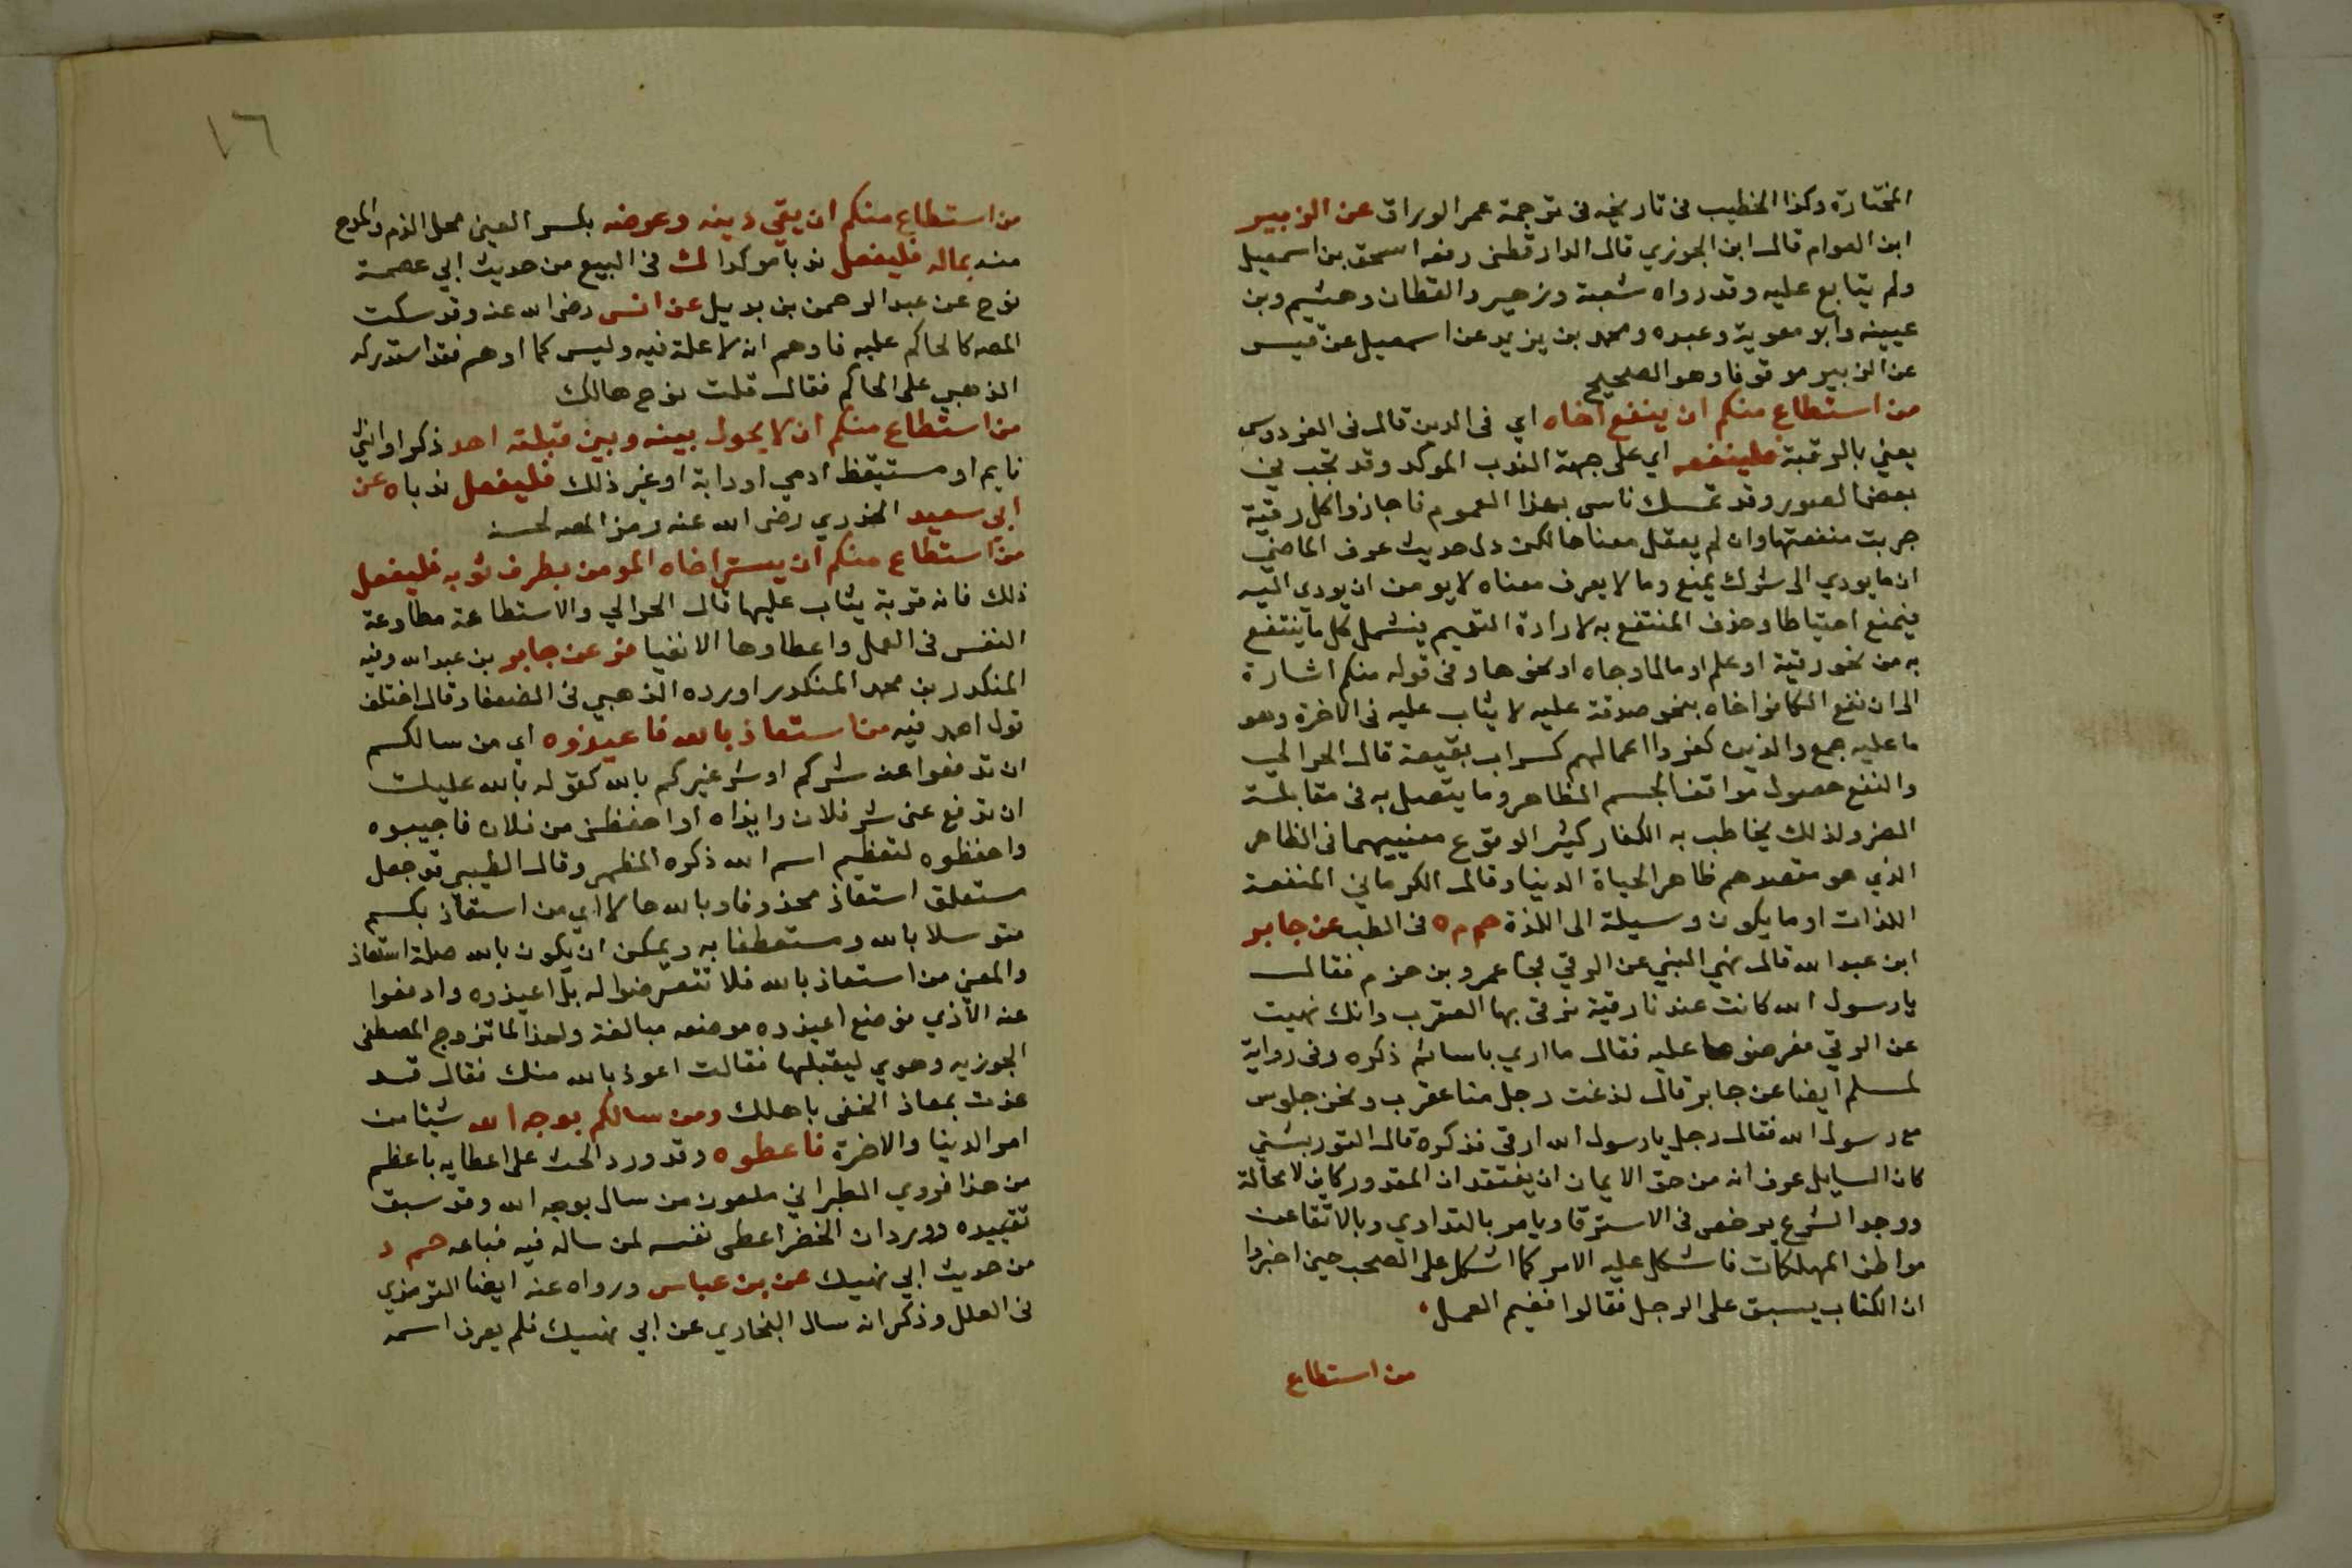 المختارة وكذا الخطيب في تاريخه في ترجمة عمر الوراق عن الزبير
ابن العوام قال ابن الجوزي قال الدارقطنى رفعه اسحق بن اسمعيل
ولم يتابع عليه وقد رواه شعبة وزهير والقطان وهشيم وبن
عيينه وابو معوية وعبده ومحمد بن يزيد عن اسمعيل عن قيس
عن الزبير موقوفا وهو الصحيح
من استطاع منكم ان ينفع اخاه اي فى الدين قال فى الفردوس
يعني بالرقية فلينفعه اي على جهة الندب الموكد وقد تجب في
بعض الصور وقد تمسك ناس بهذا العموم فاجازوا كل رقية
جربت منفعتها وان لم يعقل معناها لكن دل حديث عوف الماضي
ان ما يودي الى شرك يمنع وما لا يعرف معناه لا يومن ان يودى اليه
فيمنع احتياطا وحذف المنتفع به لارادة التعميم فيشمل كل ما ينتفع
به من نحو رقية او علم او مال او جاه او نحوها وفى قوله منكم اشارة
الى ان نفع الكافر اخاه بنحو صدقة عليه لا يثاب عليه فى الاخرة وهو
ما عليه جمع والذين كفروا اعمالهم كسراب بقيعة قال الحرالي
والنفع حصول موافق الجسم الظاهر وما يتصل به فى مقابلة
الضر ولذلك يخاطب به الكفار كثير الوقوع معنييهما فى الظاهر
الذي هو مقصدهم ظاهر الحياة الدنيا وقال الكرماني المنفعة
اللذات او ما يكون وسيلة الى اللذة حم م ه فى الطب عن جابر
ابن عبد الله قال نهي النبي عن الرقي فجا عمرو بن حزم فقال
يا رسول الله كانت عندنا رقية نرقى بها العقرب وانك نهيت
عن الرقي فعرضوها عليه فقال ما اري باسا ثم ذكره وفى رواية
لمسلم ايضا عن جابر قال لذغت رجل منا عقرب ونحن جلوس
مع رسول الله فقال رجل يا رسول الله ارقى فذكره قال التوربشتي
كان السايل عرف انه من حق الايمان ان يعتقد ان المقدور كاين لا محالة
ووجد الشرع يرخص فى الاسترقا ويامر بالتداوي وبالاتقا عن
مواطن المهلكات فاشكل عليه الامر كما اشكل على الصحب حين اخبروا
ان الكتاب يسبق على الرجل فقالوا ففيم العمل
من استطاع
١٦
من استطاع منكم ان يقي دينه وعرضه بكسر العين محل الذم والمدح
منه بماله فليفعل ندبا موكدا ك فى البيع من حديث ابي عصمة
نوح عن عبد الرحمن بن بديل عن انس رضى الله عنه وقد سكت
المصه كالحاكم عليه فاوهم انه لا علة فيه وليس كما اوهم فقد استدركه
الذهبي على الحاكم فقال قلت نوح هالك
من استطاع منكم ان لا يحول بينه وبين قبلته احد ذكر او انثي
نايم او مستيقظ ادمي او دابة او غير ذلك فليفعل ندبا ه عن
ابي سعيد الخدري رضى الله عنه رمز المصه لحسنه
من استطاع منكم ان يستر اخاه المومن بطرف ثوبه فليفعل
ذلك فانه قربة يثاب عليها قال الحرالي والاستطاعة مطاوعة
النفس فى العمل واعطاوها الانقيا فر عن جابر بن عبد الله وفيه
المنكدر بن محمد المنكدر اورده الذهبي فى الضعفا وقال اختلف
قول احمد فيه من استعاذ بالله فاعيذوه اي من سالكم
ان تدفعوا عنه شركم او شر غيركم بالله كقوله بالله عليك
ان تدفع عنى شر فلان وايذاه او احفظنى من فلان فاجيبوه
واحفظوه لتعظيم اسم الله ذكره المظهر وقال الطيبي قد جعل
متعلق استعاذ محذوفا وبالله حالا اي من استعاذ بكم
متوسلا بالله ومستعطفا به ويمكن ان يكون بالله صلة استعاذ
والمعنى من استعاذ بالله فلا تتعرضوا له بل اعيذوه وادفعوا
عنه الاذي فوضع اعيذوه موضعه مبالغة ولهذا لما تزوج المصطفى
الجوزيه وهوي ليقبلها فقالت اعوذ بالله منك فقال قد
عذت بمعاذ الحقى باهلك ومن سالكم بوجه الله شيئا من
امر الدنيا والاخرة فاعطوه وقد ورد الحث على اعطايه باعظم
من هذا فروي الطبراني ملعون من سال بوجه الله وقد سبق
تقييده وورد ان الخضر اعطى نفسه لمن ساله فيه فباعه حم د
من حديث ابي نهيك عن بن عباس ورواه عنه ايضا الترمذي
فى العلل وذكر انه سال البخاري عن ابي نهيك فلم يعرف اسمه